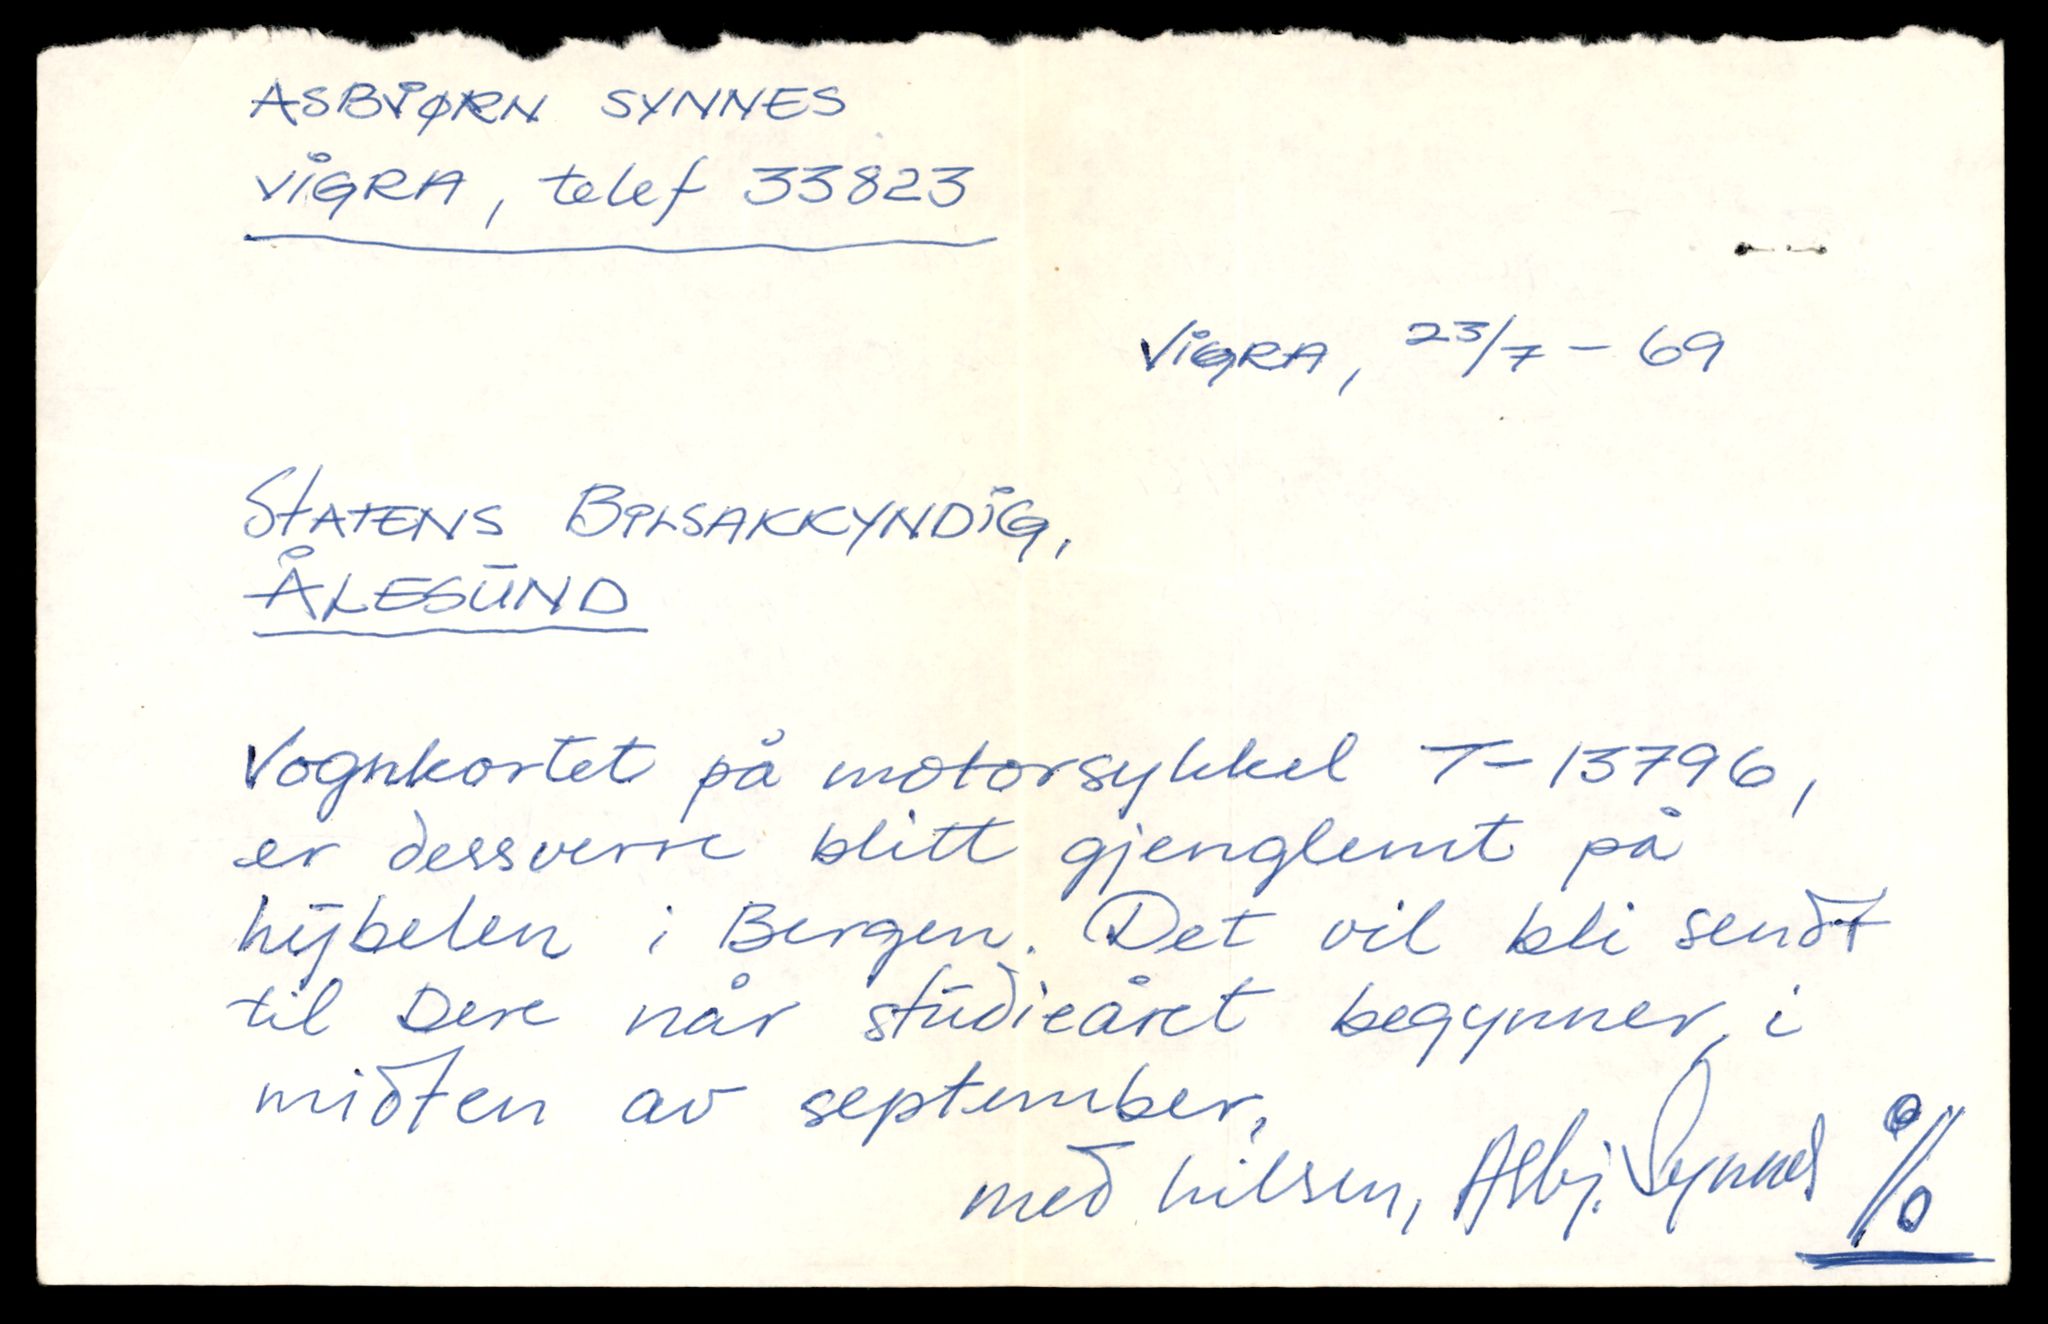 ASBJØRN SYNNES
VIGRA, telef 33823
VIGRA, 23/7 - 69
STATENS BILSAKKYNDIG,
ÅLESUND
Vognkortet på motorsykkel T-13796,
er dessverre blitt gjenglemt på
hybelen i Bergen. Det vil bli sendt
til Dere når studieåret begynner, i
midten av september.
med hilsen, Asbj. Synnes %